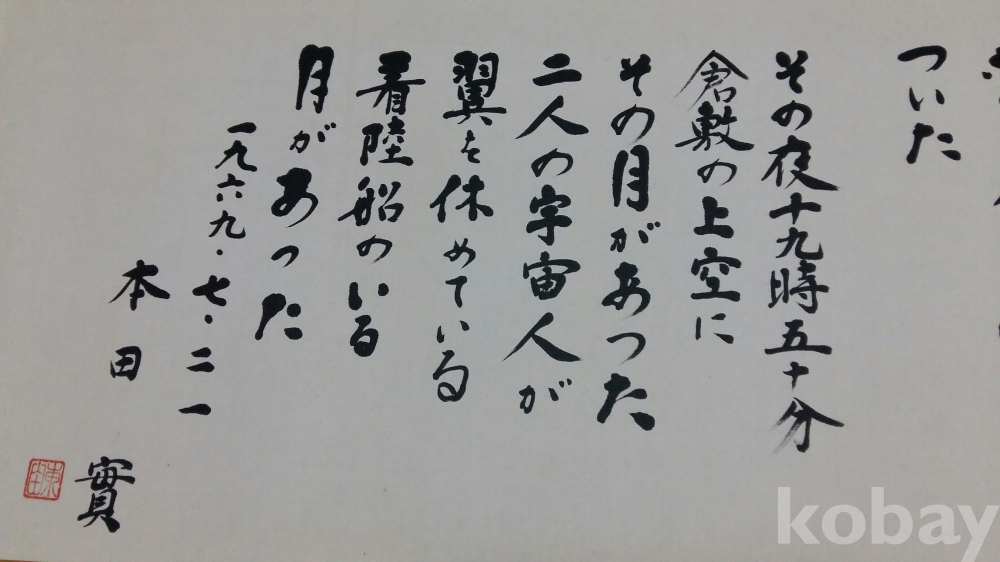 ついた
その夜十九時五十分
倉敷の上空に
その月があつた
二人の宇宙人が
翼を休めている
着陸船のいる
月があった
一九六九・七・二一
本田 實
kobay